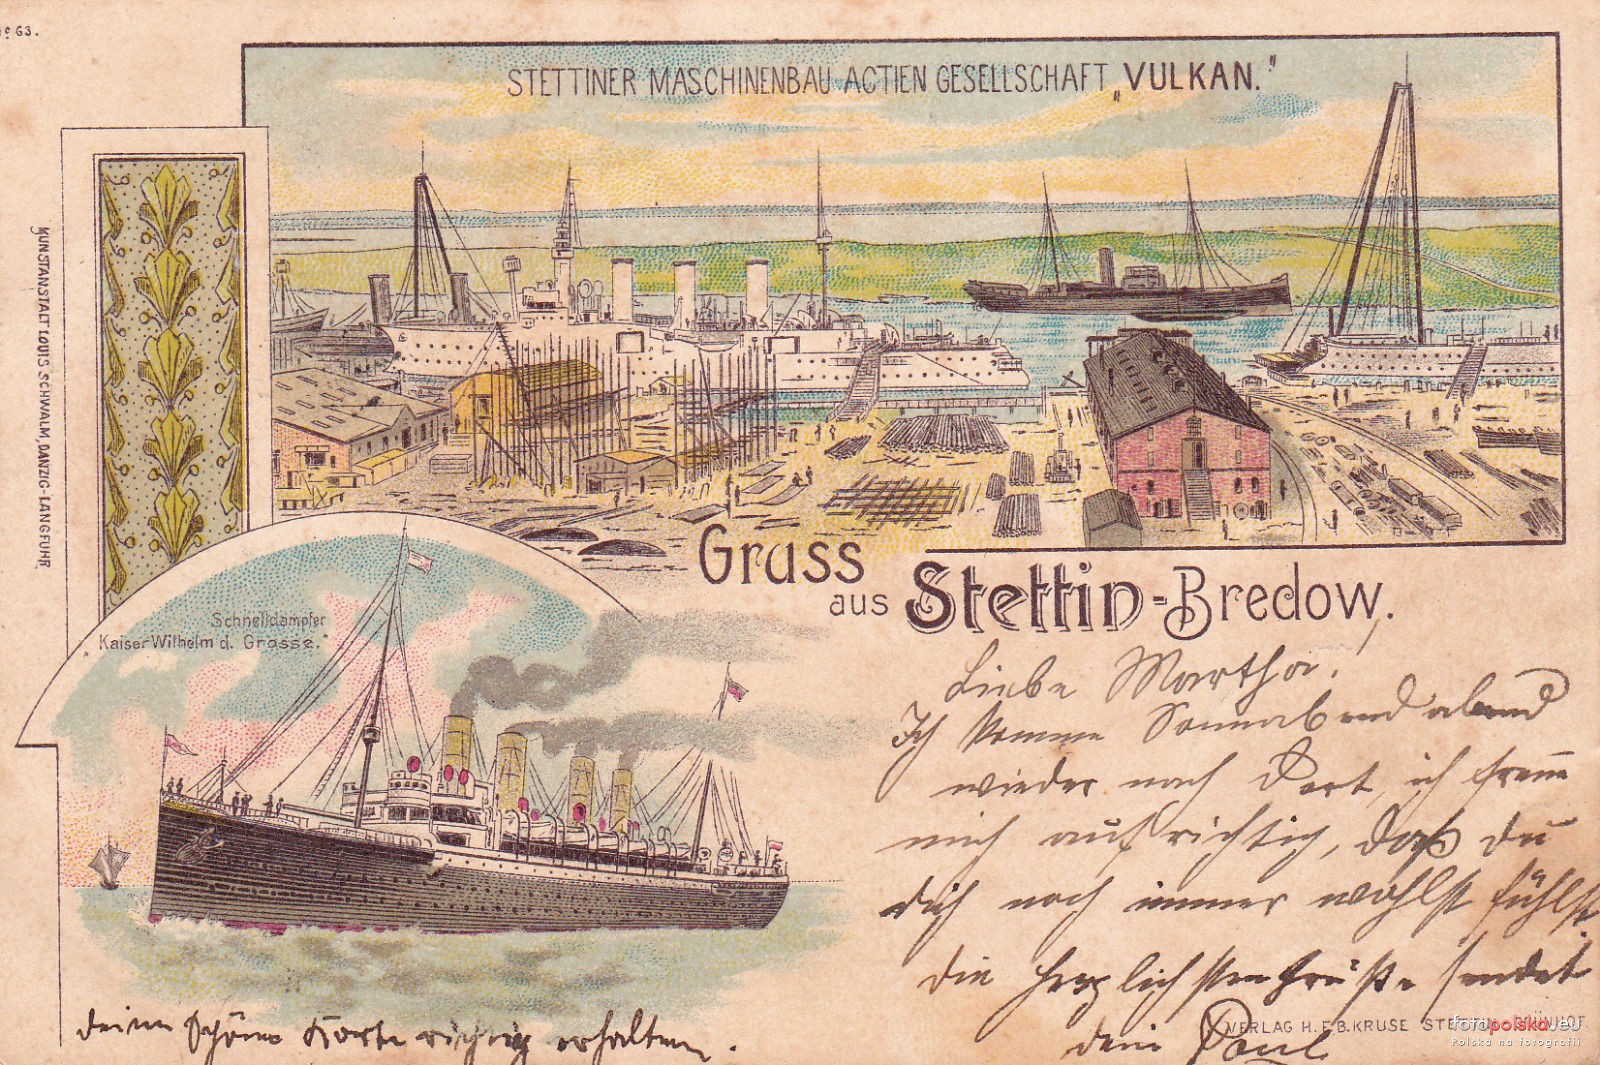 № 63.
STETTINER MASCHINENBAU ACTIEN GESELLSCHAFT „VULKAN.“
KUNSTANSTALT LOUIS SCHWALM, DANZIG-LANGFUHR.
Gruss
aus Stettin-Bredow.
Schnelldampfer
„Kaiser Wilhelm d. Grosse.“
Liebe Martha!
Ich komme Sonnabend abend
wieder nach Dort, ich freue
mich aufrichtig, daß du
dich noch immer wohlst fühlst
die herzlichsten Grüße sendet
dein Paul
deine schöne Karte richtig erhalten.
VERLAG H. E. B. KRUSE STETTIN-GRÜNHOF.
fotopolska.eu
Polska na fotografii